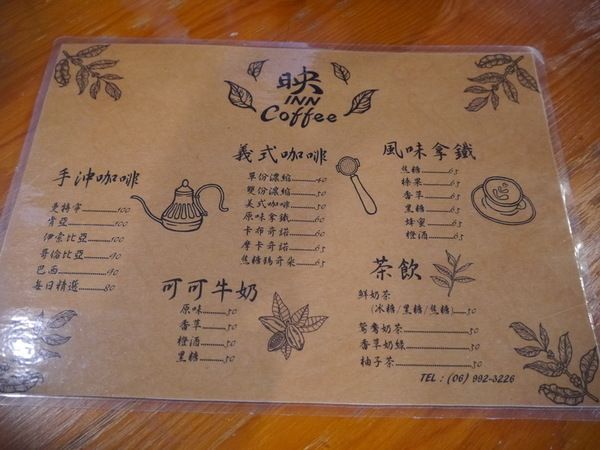 映
INN
Coffee
手沖咖啡
曼特寧............100
肯亞............100
伊索比亞............100
哥倫比亞............90
巴西............90
每日精選............80
義式咖啡
單份濃縮............40
雙份濃縮............50
美式咖啡............50
原味拿鐵............60
卡布奇諾............60
摩卡奇諾............65
焦糖瑪奇朵............65
風味拿鐵
焦糖............65
榛果............65
香草............65
黑糖............65
蜂蜜............65
橙酒............65
可可牛奶
原味............50
香草............50
橙酒............50
黑糖............50
茶飲
鮮奶茶
(冰糖/黑糖/焦糖)......50
鴛鴦奶茶............50
香草奶綠............50
柚子茶............50
TEL : (06) 992-3226